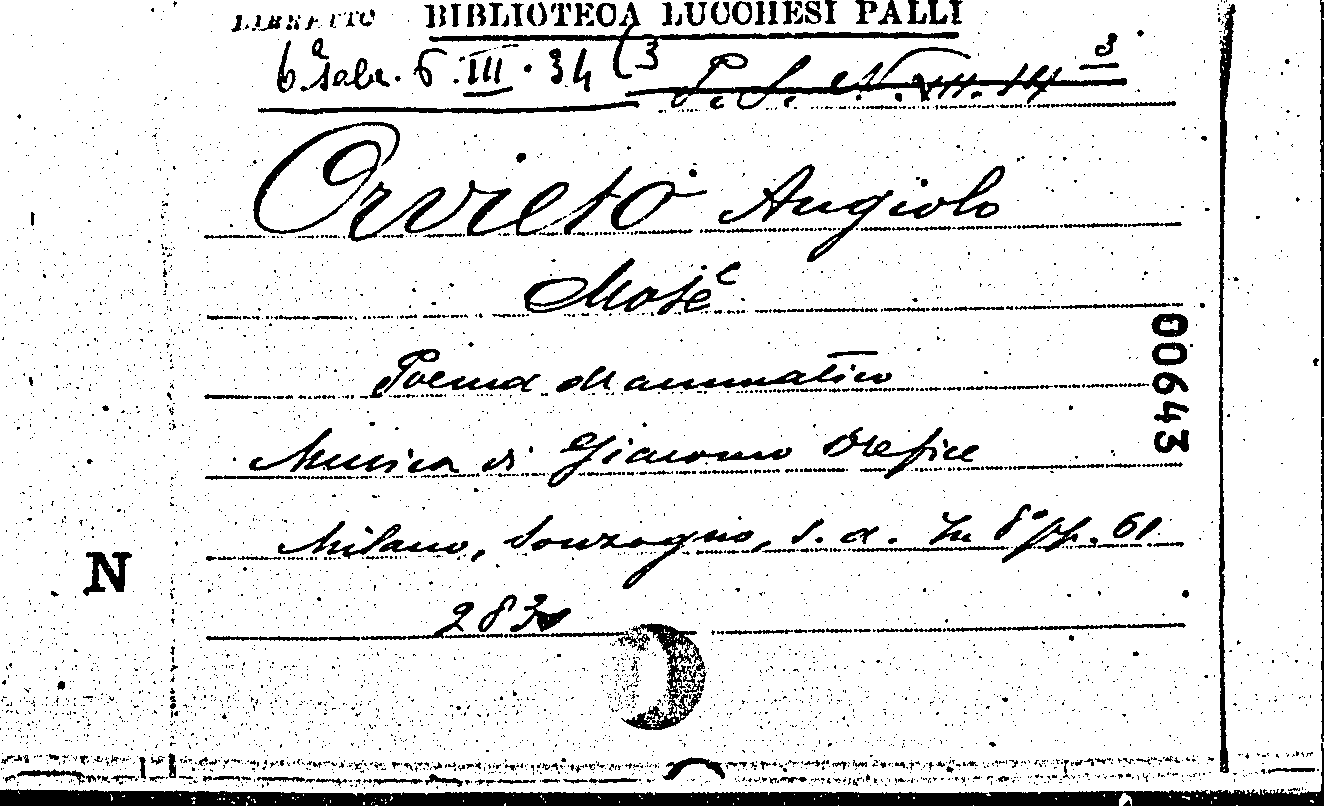 LIBRETTO BIBLIOTECA LUCCHESI PALLI
6ª sala. 6. III. 34 (3 P. S. N. VII. 14 3
Orvieto Angiolo
Mosè
Poema drammatico
Musica di Giacomo Orefice
Milano, Sonzogno, s. a. In 8° pp. 61
283
00643
N